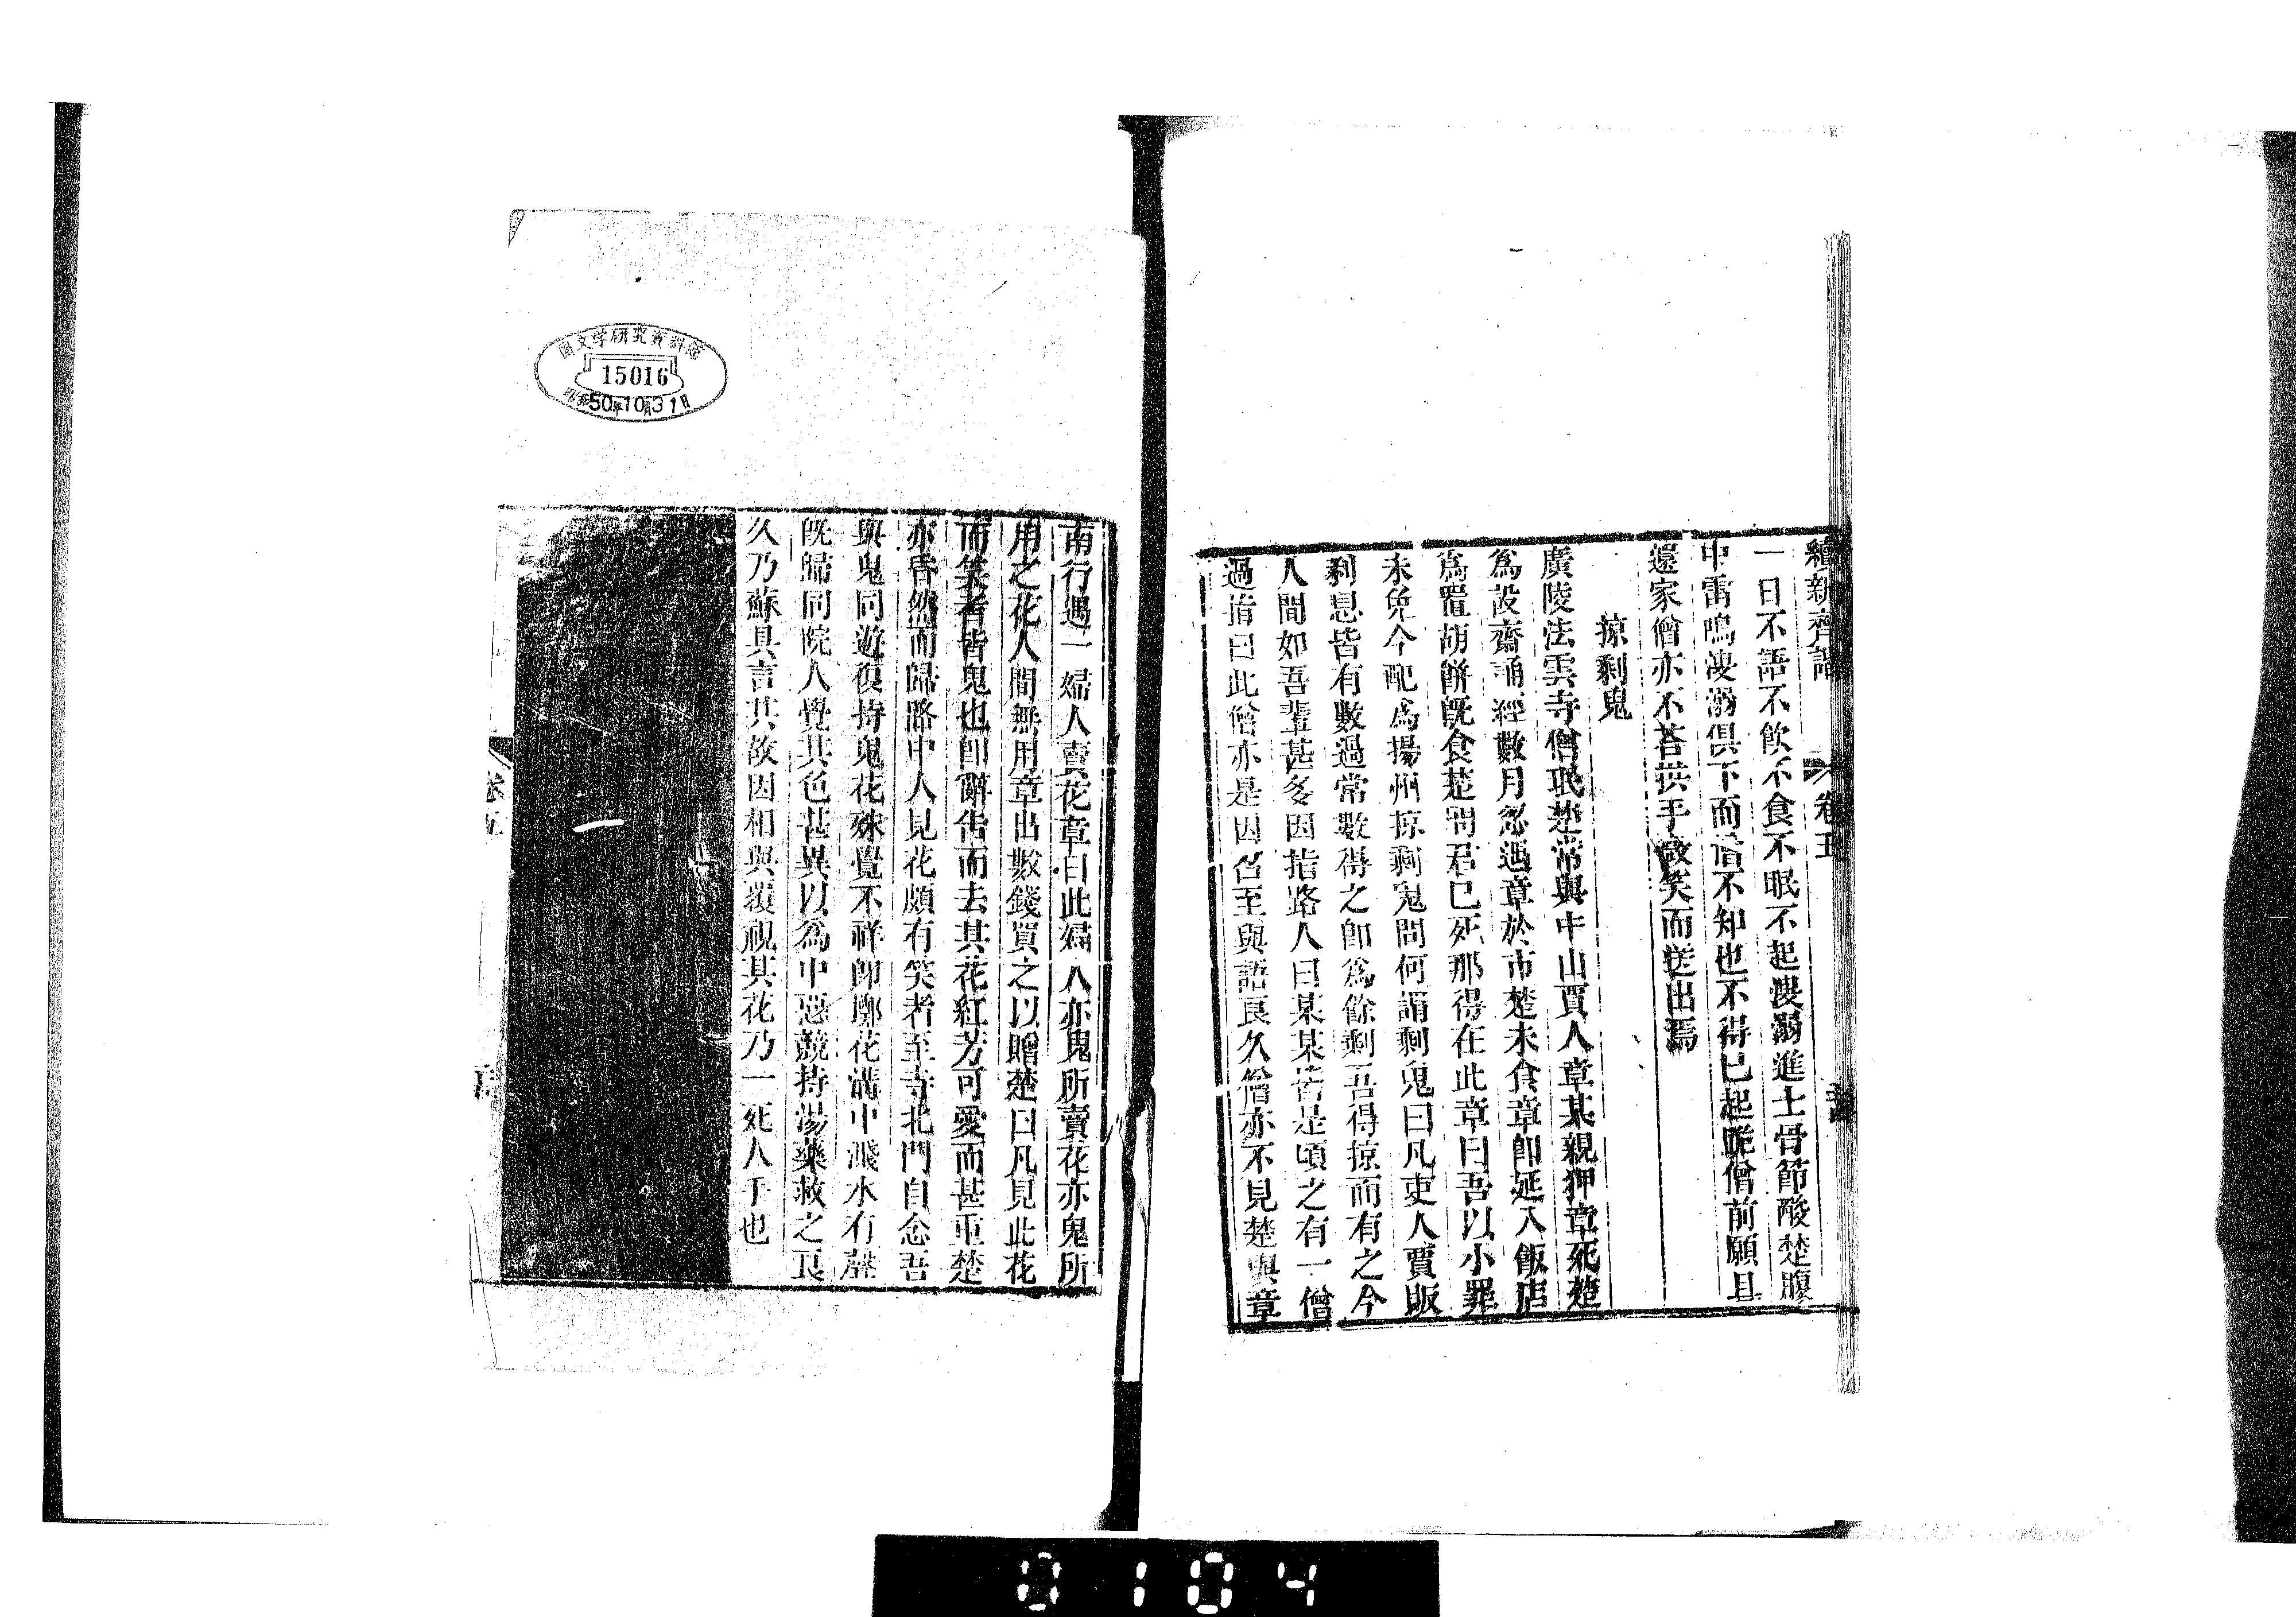 續新齊諧
卷五
一日不語不飲不食不眠不起溲溺進士骨節酸楚腹
中雷鳴溲溺俱下而僧不知也不得已起跪僧前願且
還家僧亦不荅拱手微笑而送出焉
掠剩鬼
廣陵法雲寺僧珉楚常與中山賈人章某親狎章死楚
為設齋誦經數月忽遇章於市楚未食章即延入飯店
為置胡餅既食楚問君已死那得在此章曰吾以小罪
未免今配為揚州掠剩鬼問何謂剩鬼曰凡吏人賈販
利息皆有數過常數得之即為餘剩吾得掠而有之今
人間如吾輩甚多因指路人曰某某皆是頃之有一僧
過指曰此僧亦是因召至與語良久僧亦不見楚與章
南行遇一婦人賣花章曰此婦人亦鬼所賣花亦鬼所
用之花人間無用章出數錢買之以贈楚曰凡見此花
而笑者皆鬼也即辭告而去其花紅芳可愛而甚重楚
亦昏然而歸路中人見花頗有笑者至寺北門自念吾
與鬼同遊復持鬼花殊覺不祥即擲花溝中濺水有聲
既歸同院人覺其色甚異以為中惡競持湯藥救之良
久乃蘇具言其故因相與覆視其花乃一死人手也
卷五
国文学研究資料館
15016
昭和50年10月31日
0104